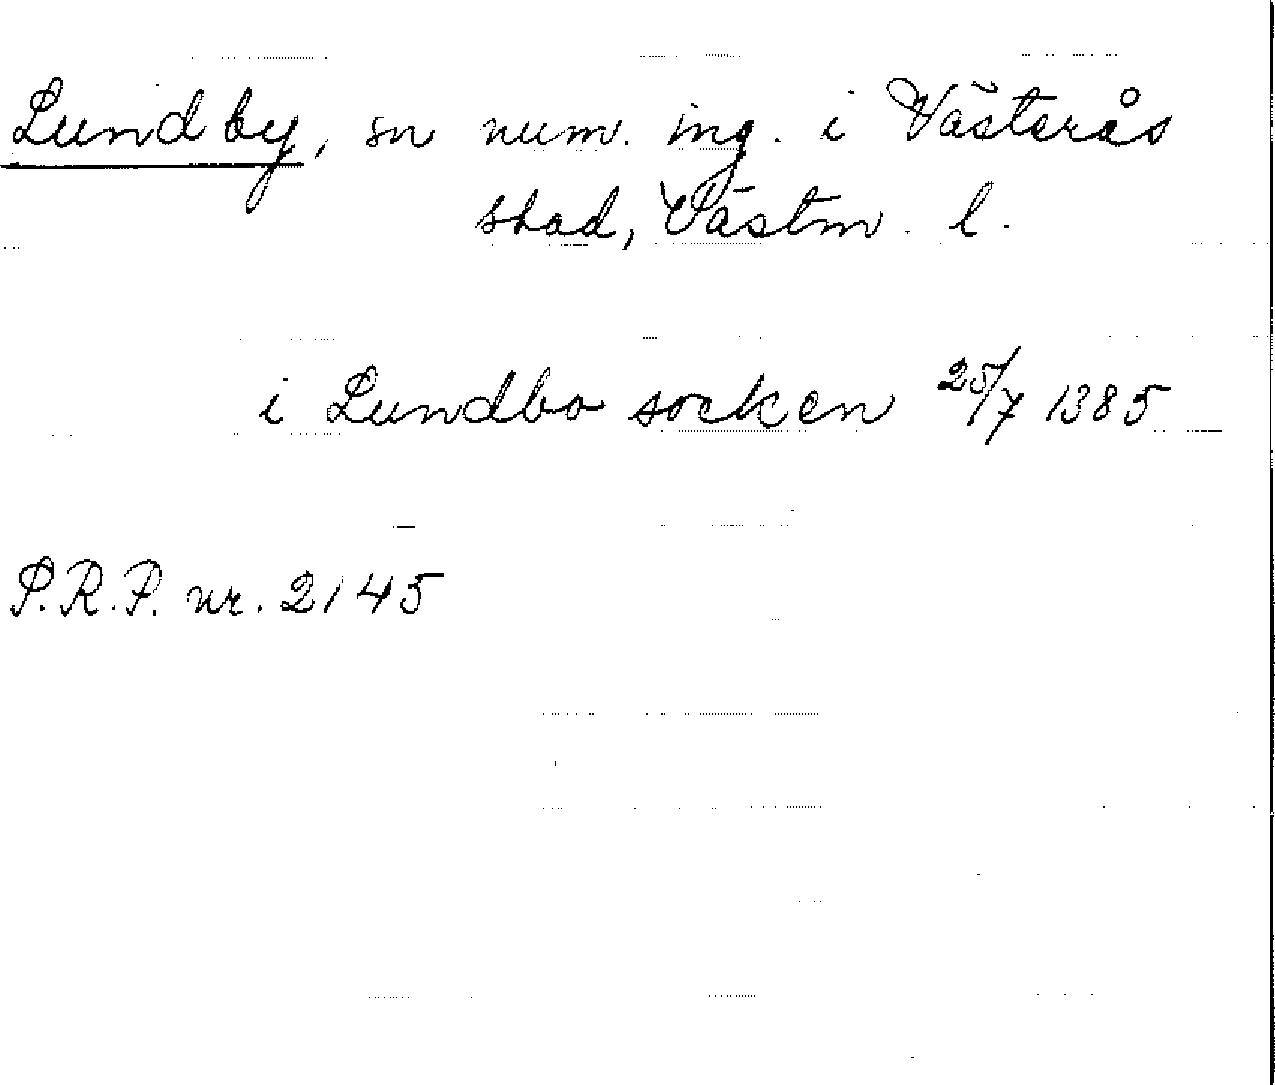 Lundby, sn num. ing. i Västerås
stad, Västm. l.
i Lundbo socken 25/7 1385
P.R.P. nr. 2145